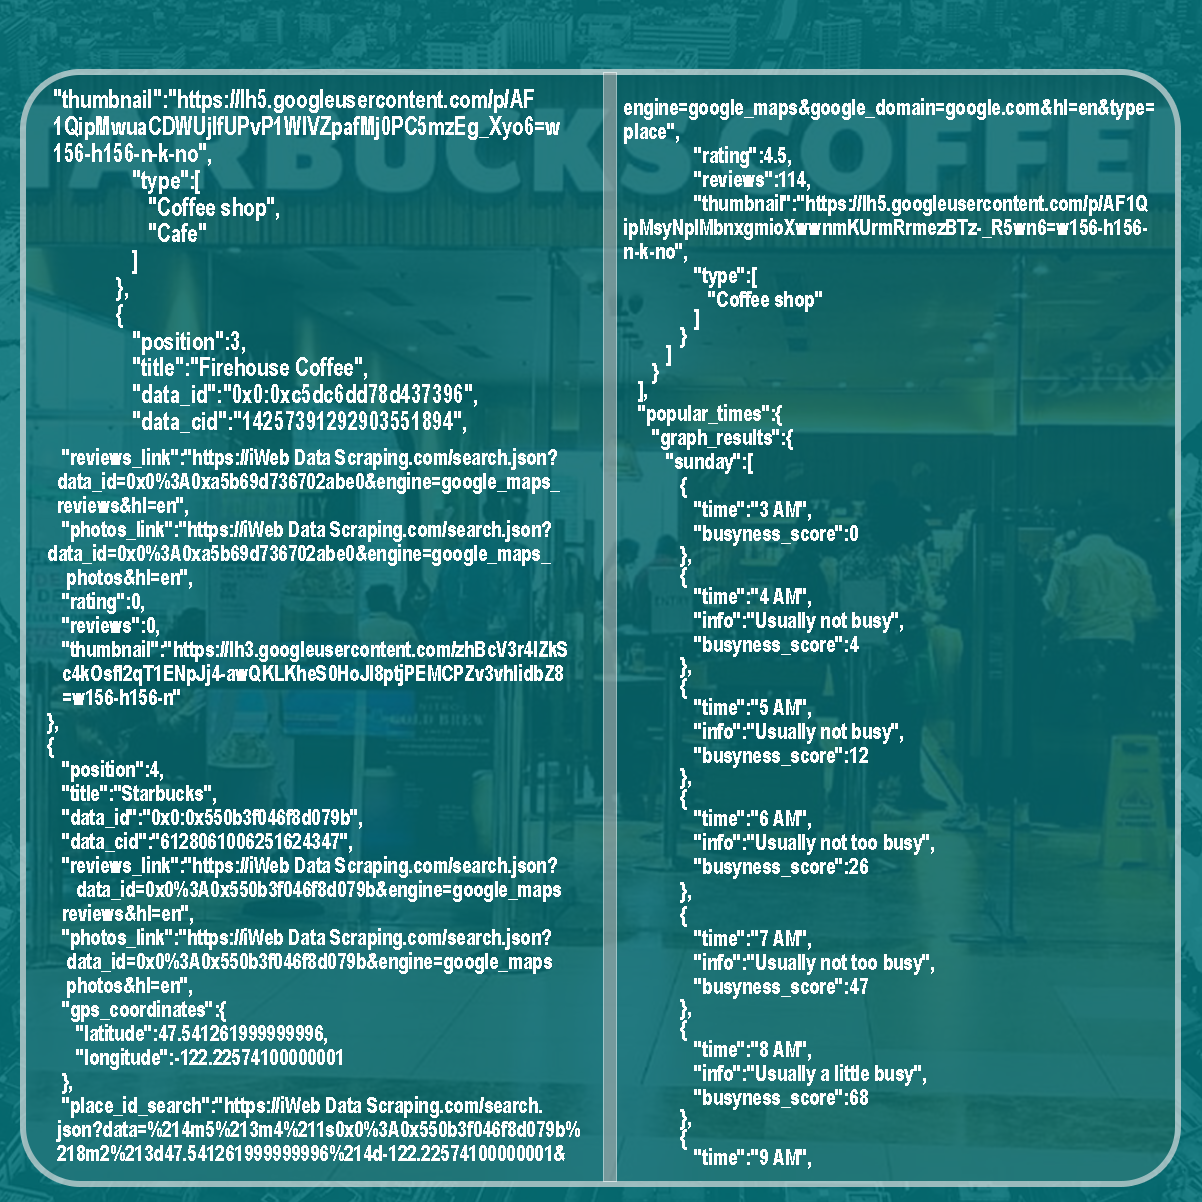 "thumbnail":"https://lh5.googleusercontent.com/p/AF
1QipMwuaCDWUjlfUPvP1WlVZpafMj0PC5mzEg_Xyo6=w
156-h156-n-k-no",
"type":[
"Coffee shop",
"Cafe"
]
},
{
"position":3,
"title":"Firehouse Coffee",
"data_id":"0x0:0xc5dc6dd78d437396",
"data_cid":"14257391292903551894",
"reviews_link":"https://iWeb Data Scraping.com/search.json?
data_id=0x0%3A0xa5b69d736702abe0&engine=google_maps_
reviews&hl=en",
"photos_link":"https://iWeb Data Scraping.com/search.json?
data_id=0x0%3A0xa5b69d736702abe0&engine=google_maps_
photos&hl=en",
"rating":0,
"reviews":0,
"thumbnail":"https://lh3.googleusercontent.com/zhBcV3r4lZkS
c4kOsfl2qT1ENpJj4-awQKLKheS0HoJl8ptjPEMCPZv3vhlidbZ8
=w156-h156-n"
},
{
"position":4,
"title":"Starbucks",
"data_id":"0x0:0x550b3f046f8d079b",
"data_cid":"6128061006251624347",
"reviews_link":"https://iWeb Data Scraping.com/search.json?
data_id=0x0%3A0x550b3f046f8d079b&engine=google_maps
reviews&hl=en",
"photos_link":"https://iWeb Data Scraping.com/search.json?
data_id=0x0%3A0x550b3f046f8d079b&engine=google_maps
photos&hl=en",
"gps_coordinates":{
"latitude":47.541261999999996,
"longitude":-122.22574100000001
},
"place_id_search":"https://iWeb Data Scraping.com/search.
json?data=%214m5%213m4%211s0x0%3A0x550b3f046f8d079b%
218m2%213d47.541261999999996%214d-122.22574100000001&
engine=google_maps&google_domain=google.com&hl=en&type=
place",
"rating":4.5,
"reviews":114,
"thumbnail":"https://lh5.googleusercontent.com/p/AF1Q
ipMsyNplMbnxgmioXwwnmKUrmRrmezBTz-_R5wn6=w156-h156-
n-k-no",
"type":[
"Coffee shop"
]
}
]
}
],
"popular_times":{
"graph_results":{
"sunday":[
{
"time":"3 AM",
"busyness_score":0
},
{
"time":"4 AM",
"info":"Usually not busy",
"busyness_score":4
},
{
"time":"5 AM",
"info":"Usually not busy",
"busyness_score":12
},
{
"time":"6 AM",
"info":"Usually not too busy",
"busyness_score":26
},
{
"time":"7 AM",
"info":"Usually not too busy",
"busyness_score":47
},
{
"time":"8 AM",
"info":"Usually a little busy",
"busyness_score":68
},
{
"time":"9 AM",
TARBUCKS COFFEE
GOLD BREW